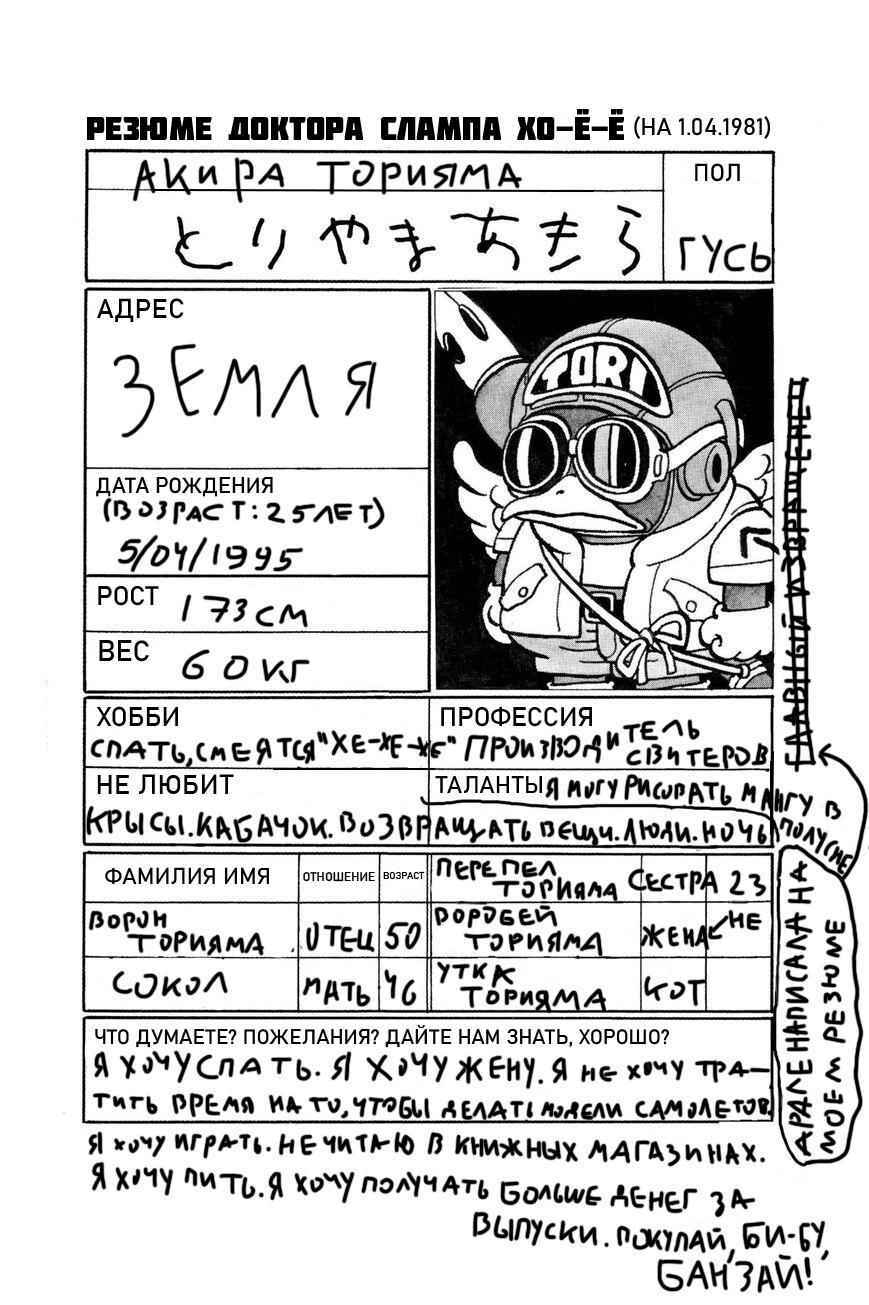 РЕЗЮМЕ ДОКТОРА СЛАМПА ХО-Ё-Ё (НА 1.04.1981)
АКИРА ТОРИЯМА
とりやまあきら
ПОЛ
ГУСЬ
АДРЕС
ЗЕМЛЯ
TORI
ДАТА РОЖДЕНИЯ
(ВОЗРАСТ: 25 ЛЕТ)
5/04/1995
РОСТ 173 СМ
ВЕС 60 КГ
ГЛАВНЫЙ ИЗВРАЩЕНЕЦ
ХОББИ
СПАТЬ, СМЕЯТСЯ "ХЕ-ХЕ-ХЕ"
ПРОФЕССИЯ
ПРОИЗВОДИТЕЛЬ
СВИТЕРОВ
НЕ ЛЮБИТ
КРЫСЫ. КАБАЧОК. ВОЗВРАЩАТЬ ВЕЩИ. ЛЮДИ. НОЧЬ
ТАЛАНТЫ Я МОГУ РИСОВАТЬ МАНГУ В
ПОЛУСНЕ
АРАЛЕ НАПИСАЛА НА
МОЕМ РЕЗЮМЕ
ФАМИЛИЯ ИМЯ ОТНОШЕНИЕ ВОЗРАСТ
ВОРОН
ТОРИЯМА ОТЕЦ 50
СОКОЛ МАТЬ 46
ПЕРЕПЕЛ
ТОРИЯМА СЕСТРА 23
ВОРОБЕЙ
ТОРИЯМА ЖЕНА НЕ
УТКА
ТОРИЯМА КОТ
ЧТО ДУМАЕТЕ? ПОЖЕЛАНИЯ? ДАЙТЕ НАМ ЗНАТЬ, ХОРОШО?
Я ХОЧУ СПАТЬ. Я ХОЧУ ЖЕНУ. Я НЕ ХОЧУ ТРА-
ТИТЬ ВРЕМЯ НА ТО, ЧТОБЫ ДЕЛАТЬ МОДЕЛИ САМОЛЕТОВ.
Я ХОЧУ ИГРАТЬ. НЕ ЧИТАЮ В КНИЖНЫХ МАГАЗИНАХ.
Я ХОЧУ ПИТЬ. Я ХОЧУ ПОЛУЧАТЬ БОЛЬШЕ ДЕНЕГ ЗА
ВЫПУСКИ. ПОКУПАЙ, БИ-БУ,
БАНЗАЙ!